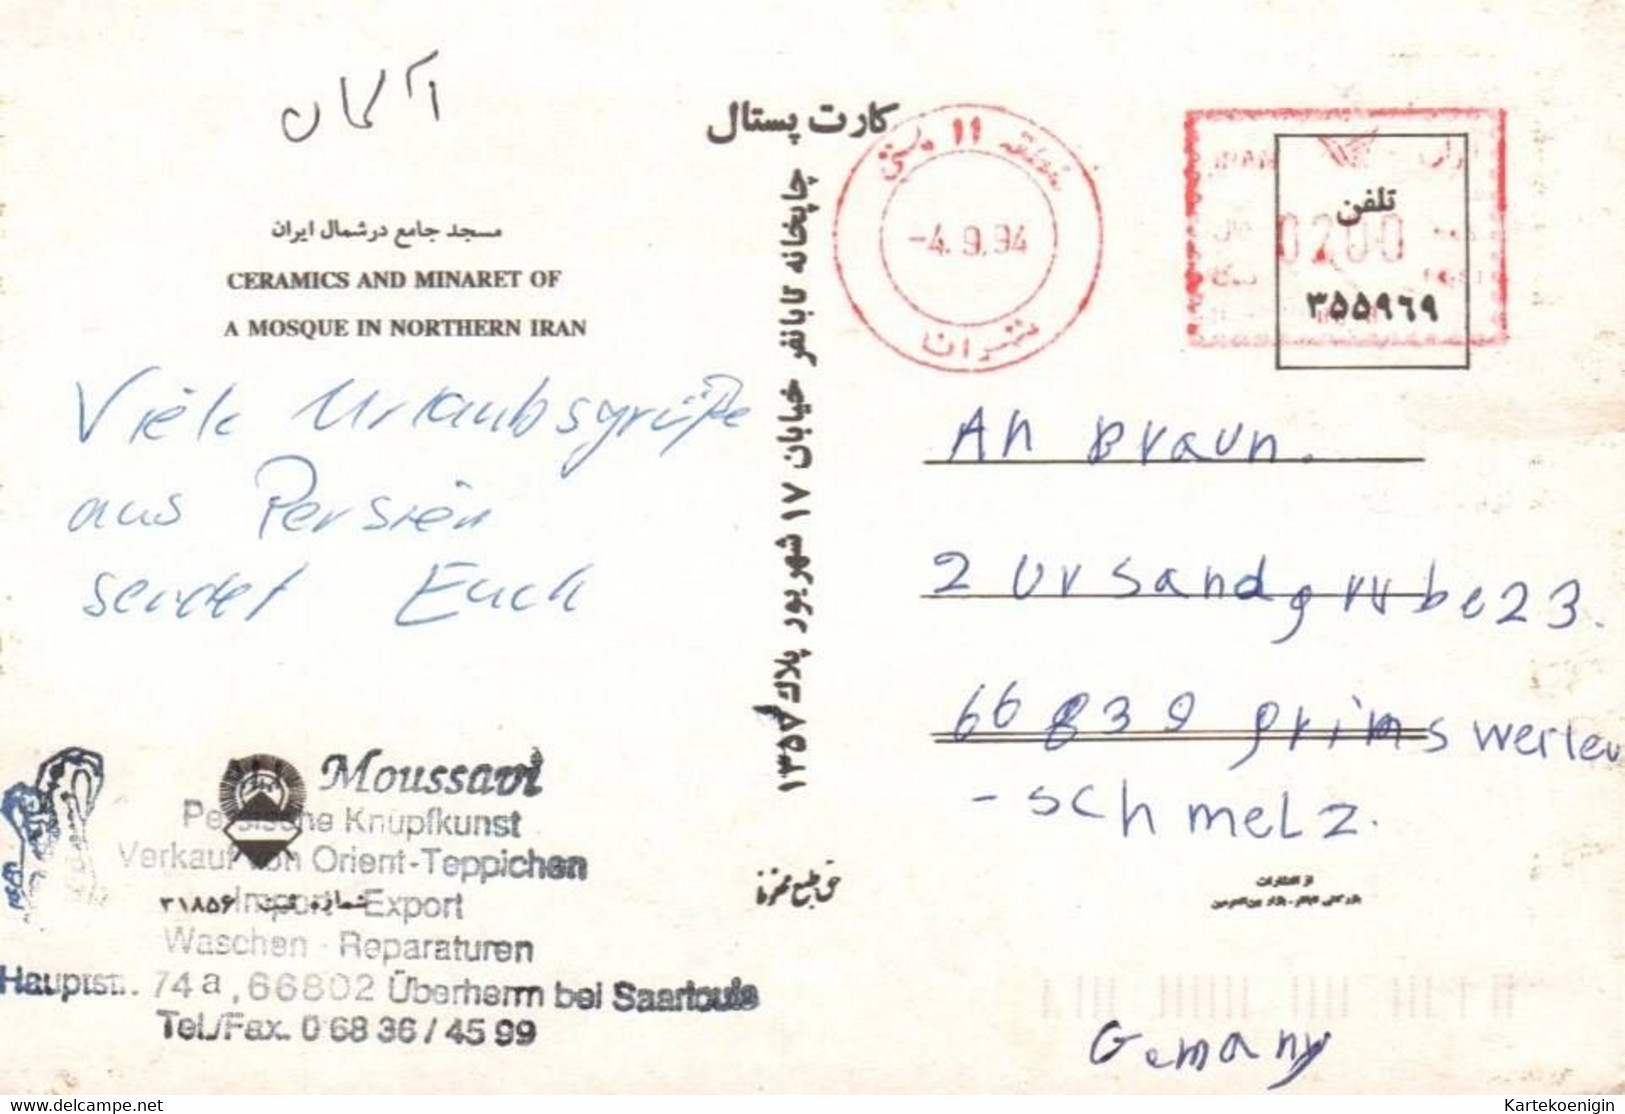 آلمان
مسجد جامع در شمال ایران
CERAMICS AND MINARET OF
A MOSQUE IN NORTHERN IRAN
Viele Urlaubsgrüße
aus Persien
sendet Euch
Moussavi
Persische Knüpfkunst
Verkauf von Orient-Teppichen
Import - Export
شماره ثبت ۳۱۸۵۶
Waschen - Reparaturen
Hauptstr. 74a, 66802 Überherrn bei Saarlouis
Tel./Fax. 0 68 36 / 45 99
کارت پستال
چاپخانه تابانفر خیابان ۱۷ شهریور پلاک ۱۳۵۷
حق طبع محفوظ
منطقه ۱۱ پستی
-4.9.94
تهران
IRAN
ایران
0200
تلفن
۳۵۵۹۶۹
An Braun.
Zur Sandgrube 23.
66839 Primswerleu
-schmelz.
از انتشارات
Gemany
www.delcampe.net
Kartekoenigin